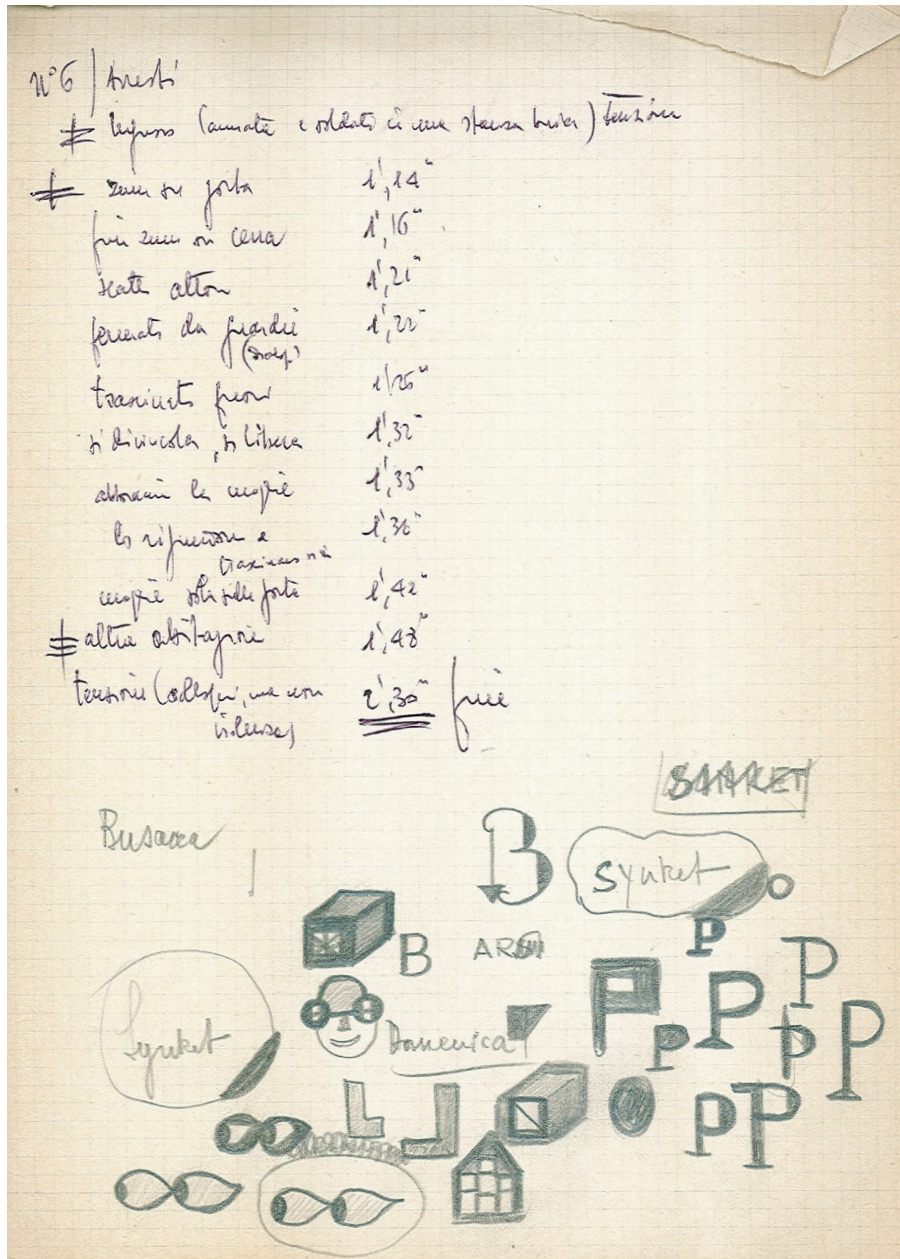 N° 6 / Arresti
Ingresso (armati e soldati in una stanza buia) tensione
zum su porta 1',14"
fine zum su cena 1',16"
scatto attore 1',21"
fermato da guardie 1',22"
trascinato fuori 1',26"
si divincola, si libera 1',32"
abbraccia la moglie 1',33"
lo riprendono e 1',36"
trascinano via
moglie sola sulla porta 1',42"
altra abitazione 1',48"
tensione (colloqui, ma non 2',30" fine
violenza)
Busacca
B
Synket
B
P
P
P
P
P
P
P
P
P
Synket
Domenica
L